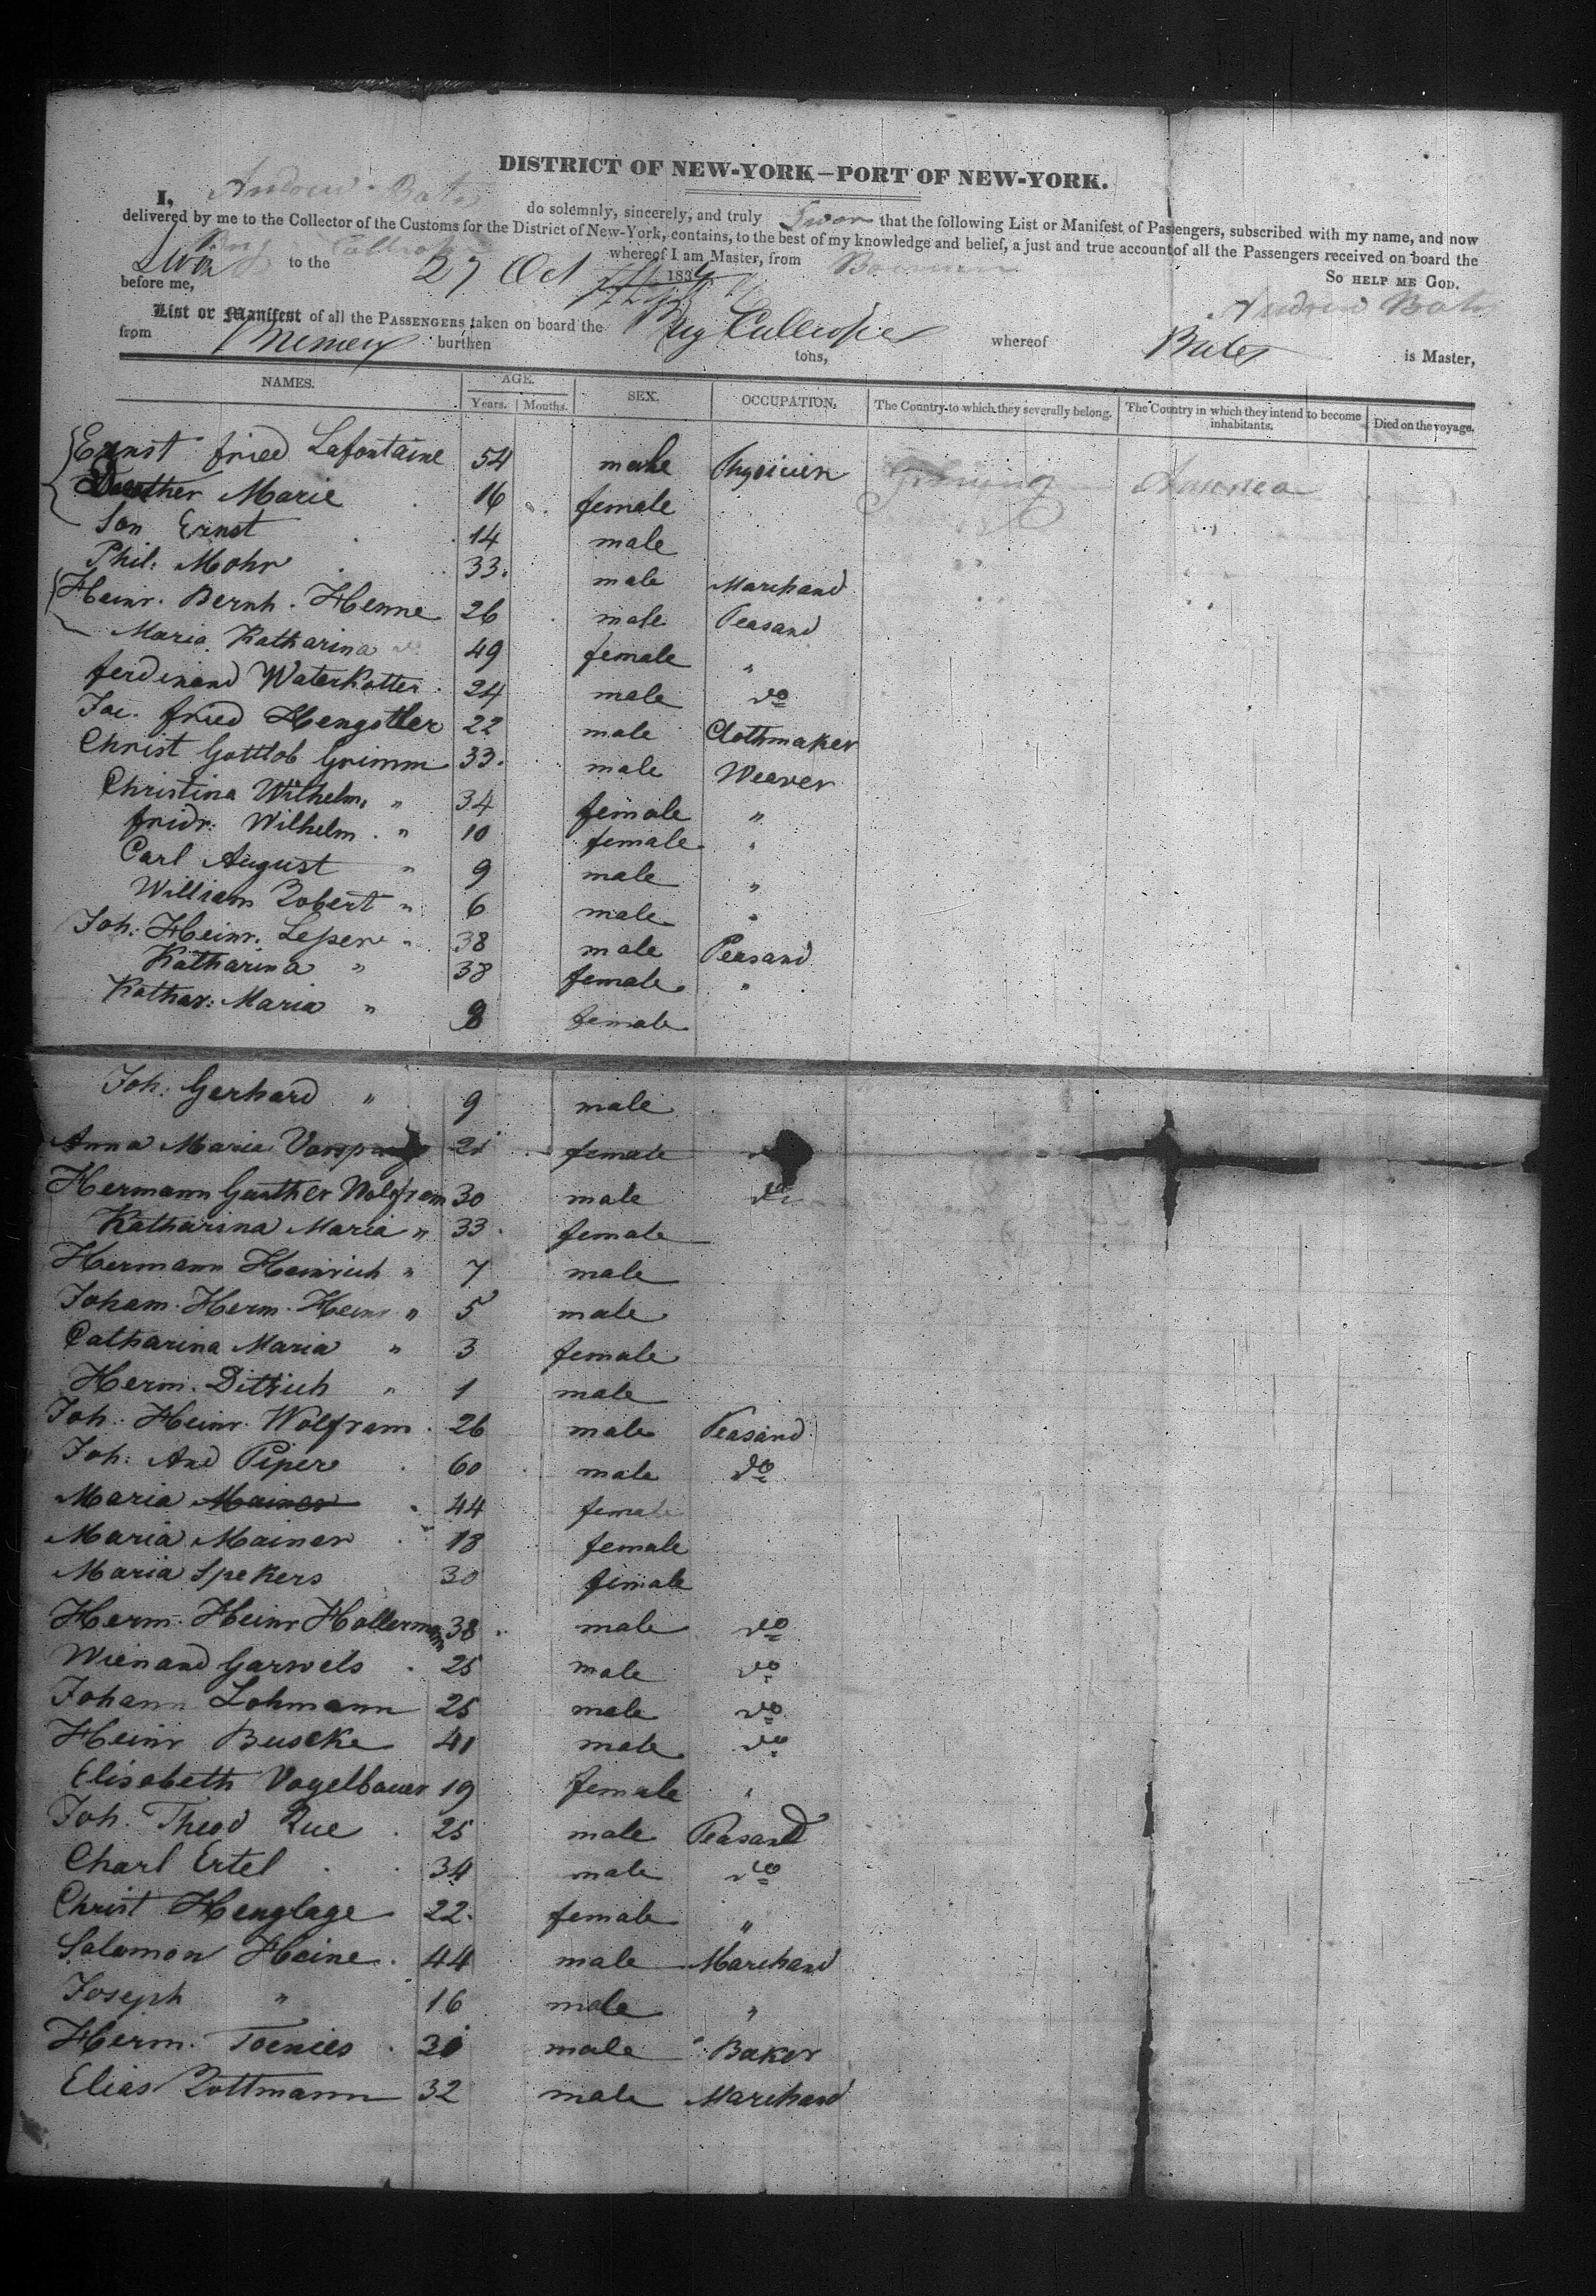 DISTRICT OF NEW-YORK—PORT OF NEW-YORK.
I, Andrew Bates do solemnly, sincerely, and truly Swear that the following List or Manifest of Passengers, subscribed with my name, and now
delivered by me to the Collector of the Customs for the District of New-York, contains, to the best of my knowledge and belief, a just and true account of all the Passengers received on board the
Brig whereof I am Master, from Bremen
Sworn to the 27 Oct 1834 So HELP ME GOD.
before me, Andrew Bates
List or Manifest of all the PASSENGERS taken on board the Brig whereof Bates is Master,
from Bremen burthen tons,
NAMES. AGE. SEX. OCCUPATION. The Country to which they severally belong. The Country in which they intend to become inhabitants. Died on the voyage.
Years. Months.
Ernst fried Lafontaine 54 male Physicien America
Doother Marie 16 female
Son Ernst 14 male
Phil. Mohr 33 male Marchand
Heinr. Bernh. Henne 26 male Peasand
Maria Katharina do 49 female "
ferdinand Waterkotter 24 male do
Jac. fried Hengstler 22 male Clothmaker
Christ Gottlob Grimm 33 male Weaver
Christina Wilhelm. " 34 female "
fridr: Wilhelm. " 10 female "
Carl August " 9 male "
William Robert " 6 male "
Joh: Heinr. Leper " 38 male Peasand
Katharina " 38 female "
Kathar: Maria " 8 female
Joh: Gerhard " 9 male
Anna Maria 21 female
Hermann Gunther Wolfram 30 male do
Katharina Maria " 33 female
Hermann Heinrich " 7 male
Joham. Herm. Heinr " 5 male
Catharina Maria " 3 female
Herm. Dittrich " 1 male
Joh. Heinr. Wolfram 26 male Peasand
Joh: And Piper 60 male do
Maria Mainer 44 female
Maria Mainer 18 female
Maria Spekers 30 female
Herm. Heinr Hollermann 38 male do
Wienand Garwels 25 male do
Johann Lohmann 25 male do
Heinr Buscke 41 male do
Elisabeth Vogelbauer 19 female "
Joh. Theod Rue 25 male Peasand
Charl Ertel 34 male do
Christ Henglage 22 female "
Salomon Heine 44 male Marchand
Joseph " 16 male "
Herm. Toenies 30 male Baker
Elias Rottmann 32 male Marchand